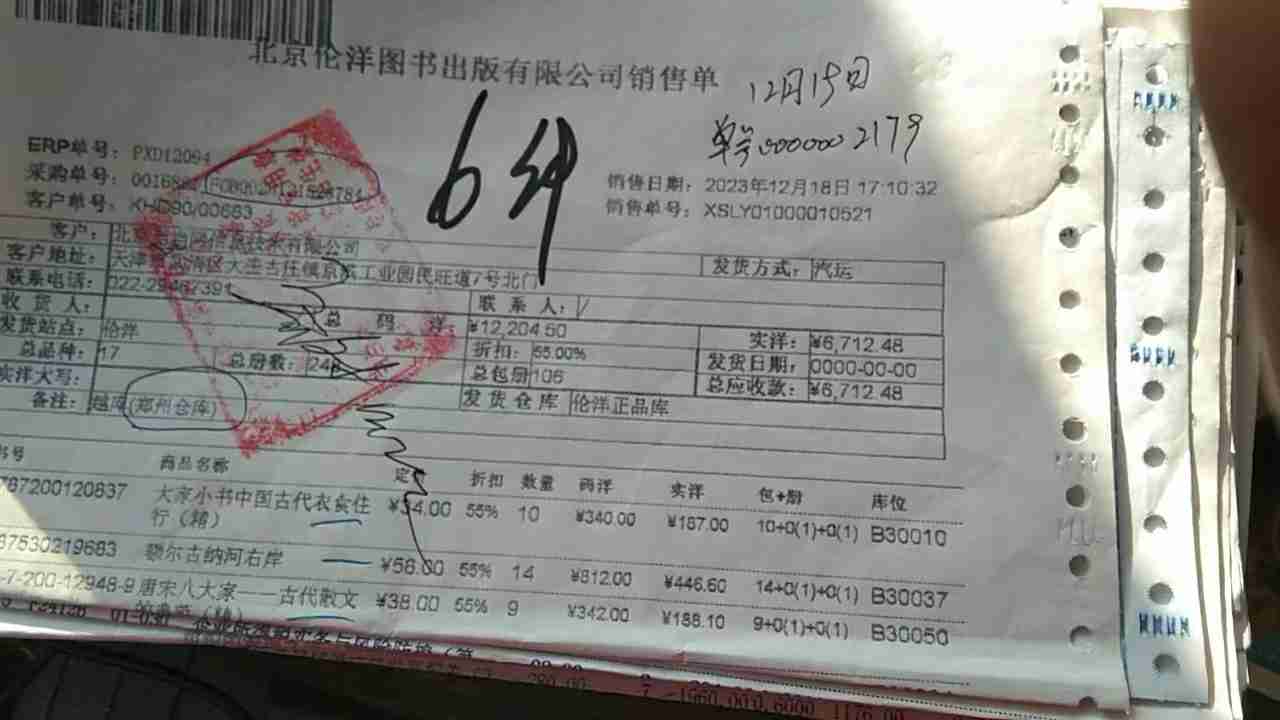 北京伦洋图书出版有限公司销售单
12月15日
单号0000002179
6件
ERP单号: PXD12094
采购单号:
客户单号: KHD90/00683
销售日期: 2023年12月18日 17:10:32
销售单号: XSLY01000010521
客户: 北京 信息技术有限公司
客户地址: 天津 区大王古庄镇京滨工业园民旺道7号北门
发货方式: 汽运
联系电话: 022-29487391
联系人:
收货人:
总码洋 ¥12,204.50
实洋: ¥6,712.48
发货站点: 伦洋
折扣: 55.00%
发货日期: 0000-00-00
总品种: 17
总册数:
总包册 106
总应收款: ¥6,712.48
实洋大写:
备注: 越库(郑州仓库)
发货仓库 伦洋正品库
书号 商品名称 定 折扣 数量 码洋 实洋 包+册 库位
787200120837 大家小书中国古代衣食住行(精) ¥34.00 55% 10 ¥340.00 ¥187.00 10+0(1)+0(1) B30010
87530219683 额尔古纳河右岸 ¥58.00 55% 14 ¥812.00 ¥446.60 14+0(1)+0(1) B30037
-7-200-12948-9 唐宋八大家——古代散文 ¥38.00 55% 9 ¥342.00 ¥188.10 9+0(1)+0(1) B30050